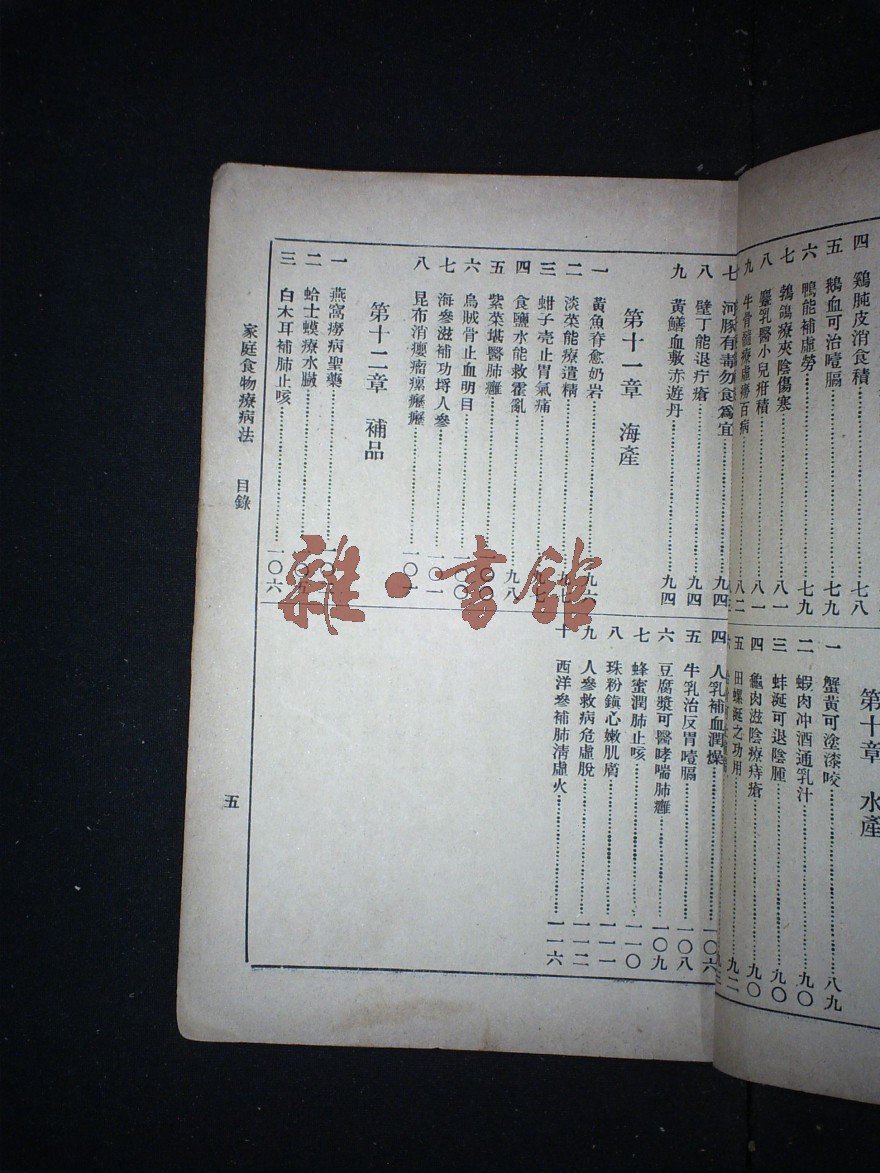 四 鷄肫皮消食積 七八
五 鵝血可治噎膈 七九
六 鴨能補虛勞 七九
七 鵓鴿療夾陰傷寒 八一
八 麋乳醫小兒疳積 八一
九 牛骨髓療虛癆百病 八二
第十章 水產
一 蟹黃可塗漆咬 八九
二 蝦肉冲酒通乳汁 九〇
三 蚌涎可退陰腫 九〇
四 龜肉滋陰療痔瘡 九〇
五 田螺涎之功用 九二
七 河豚有毒勿食爲宜 九四
八 壁丁能退疔瘡 九四
九 黃鱔血敷赤遊丹 九四
第十一章 海產
一 黃魚脊愈奶岩 九六
二 淡菜能療遺精 九七
三 蚶子壳止胃氣痛 九七
四 食鹽水能救霍亂 九八
五 紫菜堪醫肺癰 一〇〇
六 烏賊骨止血明目 一〇〇
七 海參滋補功埒人參 一〇一
八 昆布消癭瘤瘰癧癧 一〇一
第十二章 補品
一 燕窩癆病聖藥
二 蛤士蟆療水臌
三 白木耳補肺止咳 一〇六
四 人乳補血潤燥 一〇六
五 牛乳治反胃噎膈 一〇八
六 豆腐漿可醫哮喘肺癰 一〇九
七 蜂蜜潤肺止咳 一一〇
八 珠粉鎭心嫩肌膚 一一一
九 人參救病危虛脫 一一二
十 西洋參補肺淸虛火 一一六
家庭食物療病法 目錄
五
雜·書館